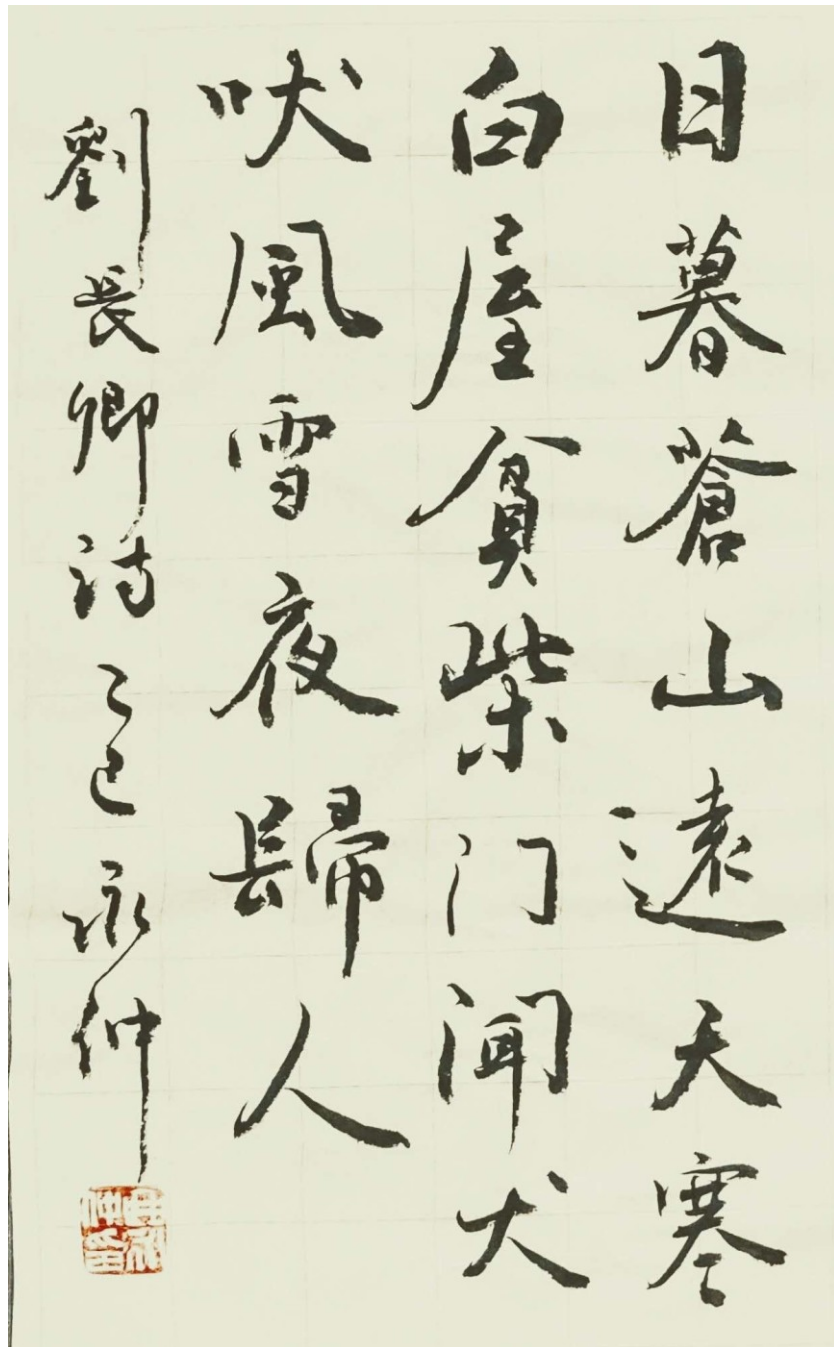 日暮蒼山遠天寒
白屋貧柴门闻犬
吠風雪夜歸人
劉長卿詩乙巳永仲